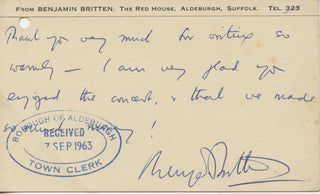 FROM BENJAMIN BRITTEN, THE RED HOUSE, ALDEBURGH, SUFFOLK. TEL. 323
Thank you very much for writing so
warmly — I am very glad you
enjoyed the concert, & that we made
so much money!
BOROUGH OF ALDEBURGH
RECEIVED
7 SEP 1963
TOWN CLERK
Benjamin Britten